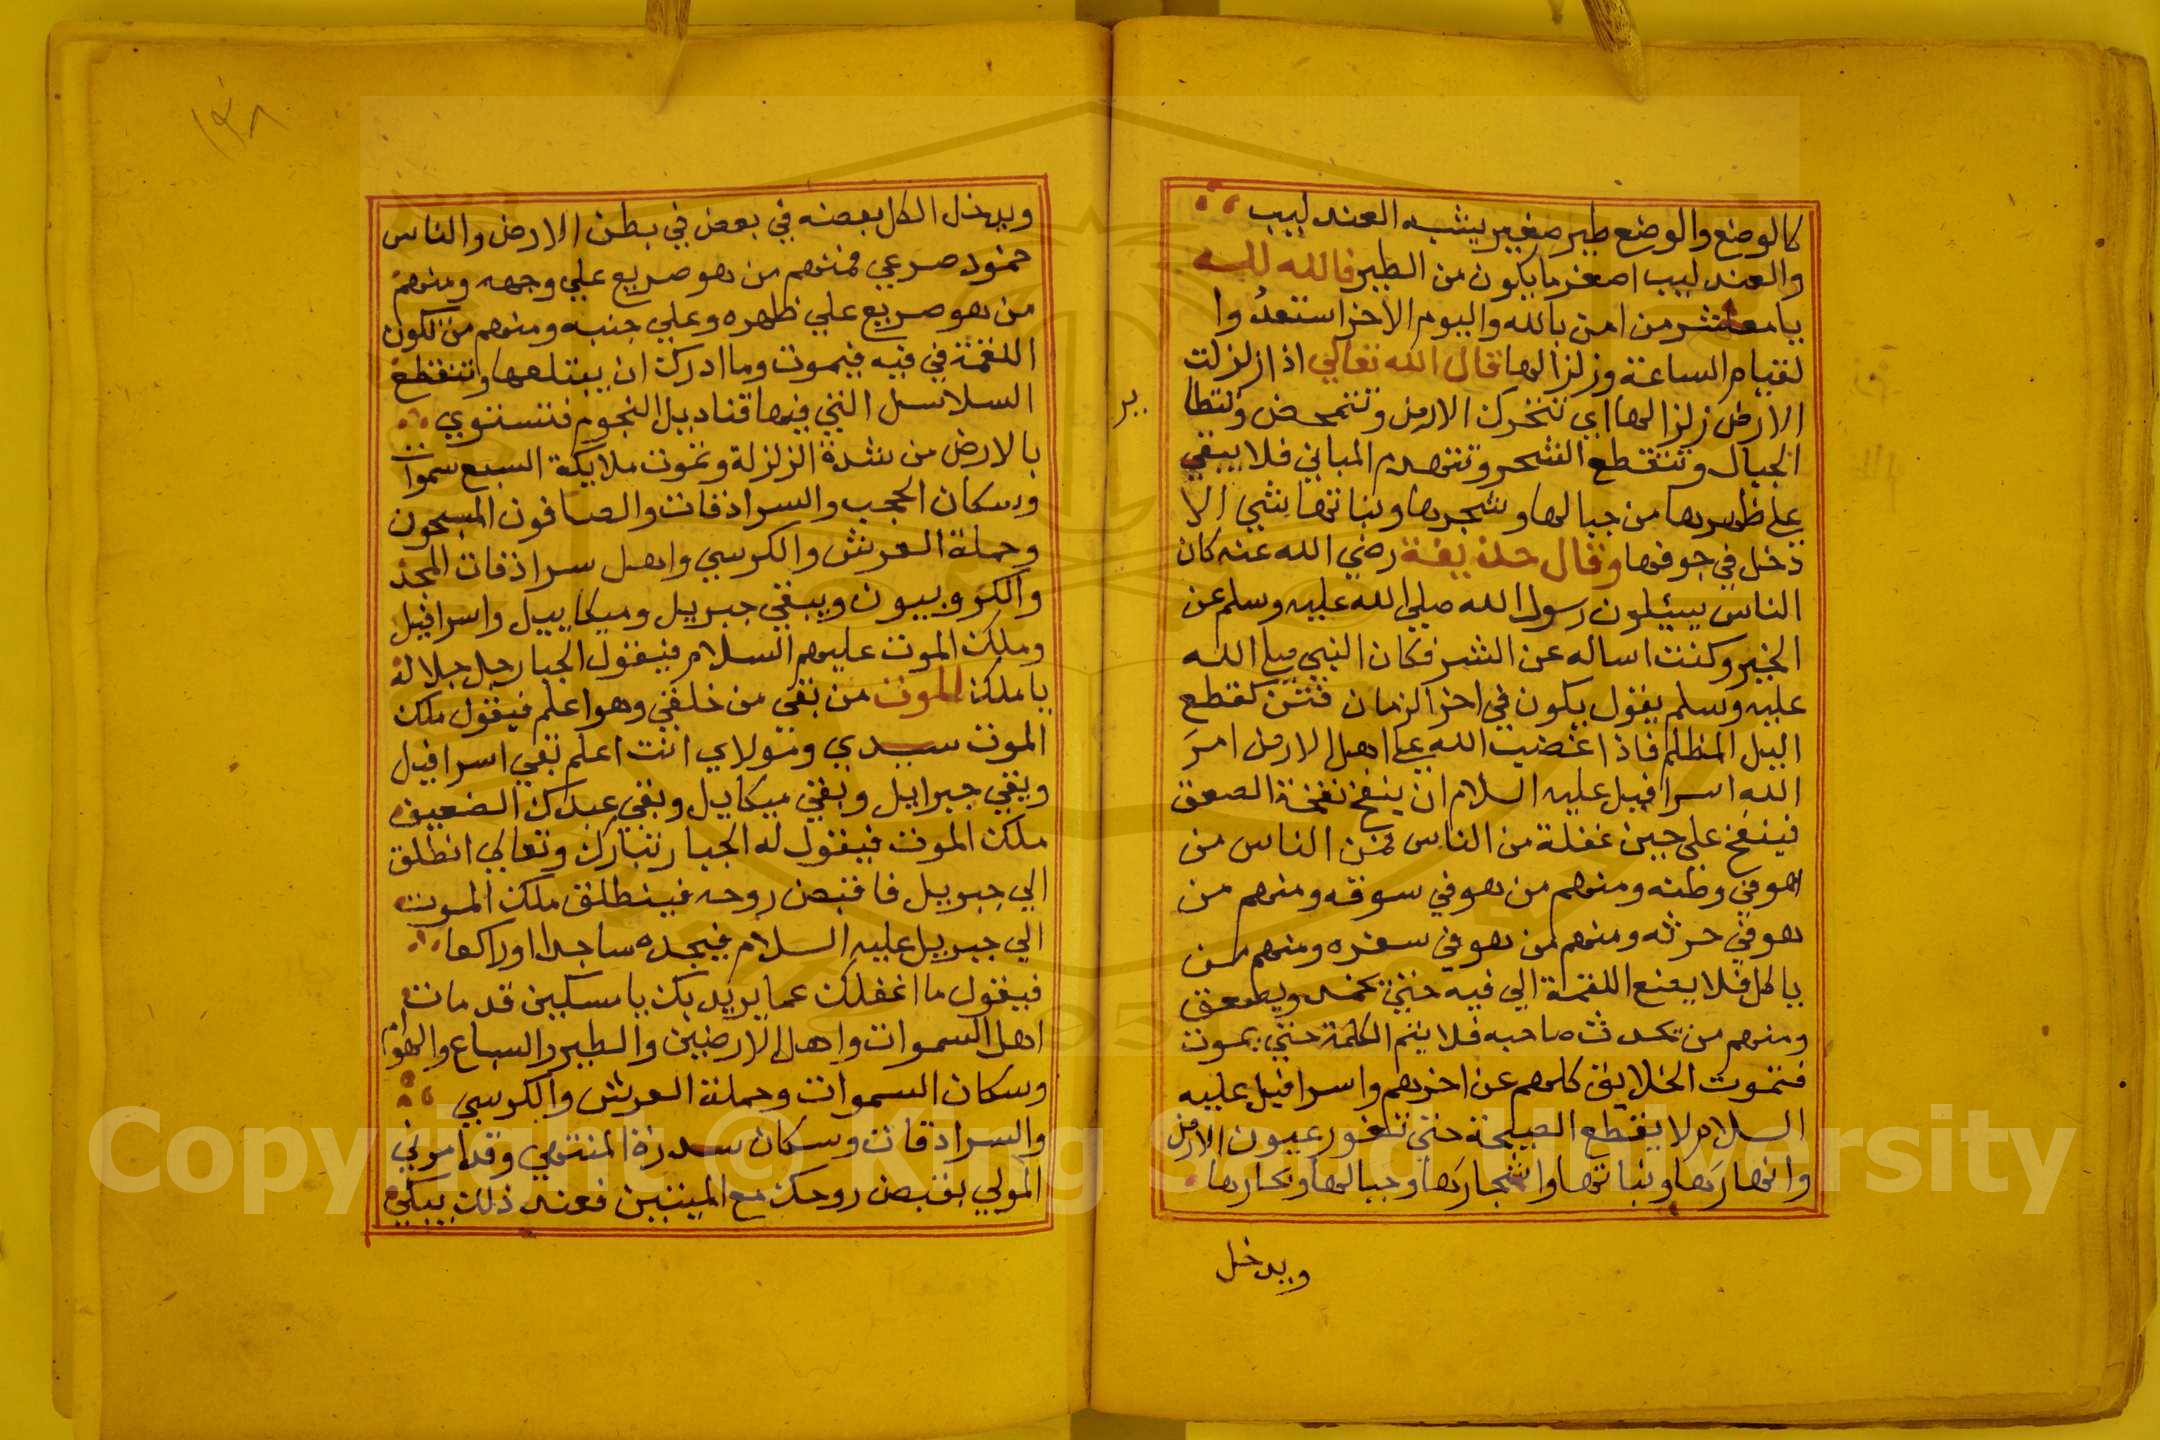 كالوضع والوضع طير صغير يشبه العندليب
والعندليب اصغر ما يكون من الطير فالله لله
يا معاشر من امن بالله واليوم الاخر استعدوا
لقيام الساعة وزلزالها قال الله تعالي اذا زلزلت
الارض زلزالها اي تتحرك الارض وتتمحض وتتطا
ير
الجبال وتتقطع الشجر وتنهدم المباني فلا يبقي
علي ظهرها من جبالها وشجرها ونباتها شي الا
دخل في جوفها وقال حذيفة رضي الله عنه كان
الناس يسئلون رسول الله صلي الله عليه وسلم عن
الخير وكنت اساله عن الشر فكان النبي صلي الله
عليه وسلم يقول يكون في اخر الزمان فتن كقطع
اليل المظلم فاذا غضبت الله علي اهل الارض امر
الله اسرافيل عليه السلام ان ينفخ نفخة الصعق
فينفخ علي حين غفلة من الناس فمن الناس من
هو في وطنه ومنهم من هو في سوقه ومنهم من
هو في حرثه ومنهم من هو في سفره ومنهم من
ياكل فلا يضع اللقمة الي فيه حتي يخمد ويصعق
ومنهم من يحدث صاحبه فلا يتم الكلمة حتي يموت
فتموت الخلايق كلهم عن اخرهم واسرافيل عليه
السلام لا يقطع الصيحة حتي تغور عيون الارض
وانهارها ونباتها واشجارها وجبالها وبحارها
ويدخل
١٣٨
ويدخل الكل بعضه في بعض في بطن الارض والناس
خمود صرعي فمنهم من هو صريع علي وجهه ومنهم
من هو صريع علي ظهره وعلي جنبه ومنهم من تكون
اللقمة في فيه فيموت وما ادرك ان يبتلعها وتنقطع
السلاسل التي فيها قناديل النجوم فتستوي
بالارض من شدة الزلزلة وتموت ملايكة السبع سموات
وسكان الحجب والسرادقات والصافون المسبحون
وحملة العرش والكرسي واهل سرادقات المجد
والكروبيون ويبقي جبريل وميكاييل واسرافيل
وملك الموت عليهم السلام فيقول الجبار جل جلاله
يا ملك الموت من بقي من خلقي وهو اعلم فيقول ملك
الموت سيدي ومولاي انت اعلم بقي اسرافيل
وبقي جبرايل وبقي ميكاييل وبقي عبدك الضعيف
ملك الموت فيقول له الجبار تبارك وتعالي انطلق
الي جبريل فاقبض روحه فينطلق ملك الموت
الي جبريل عليه السلام فيجده ساجدا او راكعا
فيقول ما اغفلك عما يريد بك يا مسكين قد مات
اهل السموات واهل الارضين والطير والسباع والهوام
وسكان السموات وحملة العرش والكرسي
والسرادقات وسكان سدرة المنتهي وقد امرني
المولي بقبض روحك مع الميتين فعند ذلك يبكي
Copyright © King Saud University